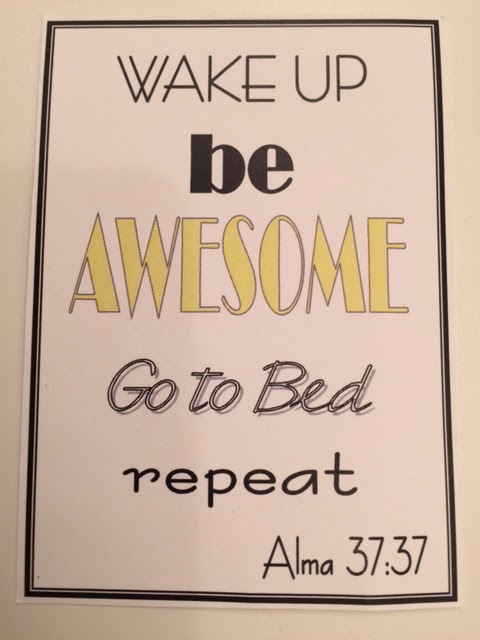 WAKE UP
be
AWESOME
Go to Bed
repeat
Alma 37:37